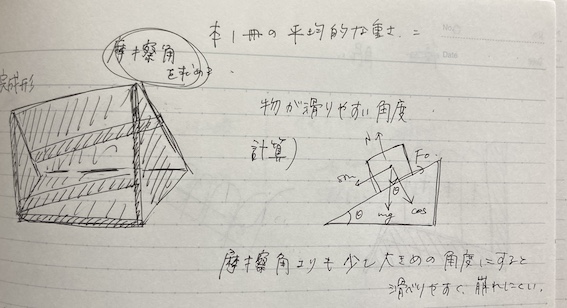 本1冊の平均的な重さ =
摩擦角
を求める
完成形
物が滑りやすい角度
計算)
N
F₀
sin
θ
θ
mg
cos
摩擦角よりも少し大きめの角度にすると
滑べりやすく、崩れにくい。